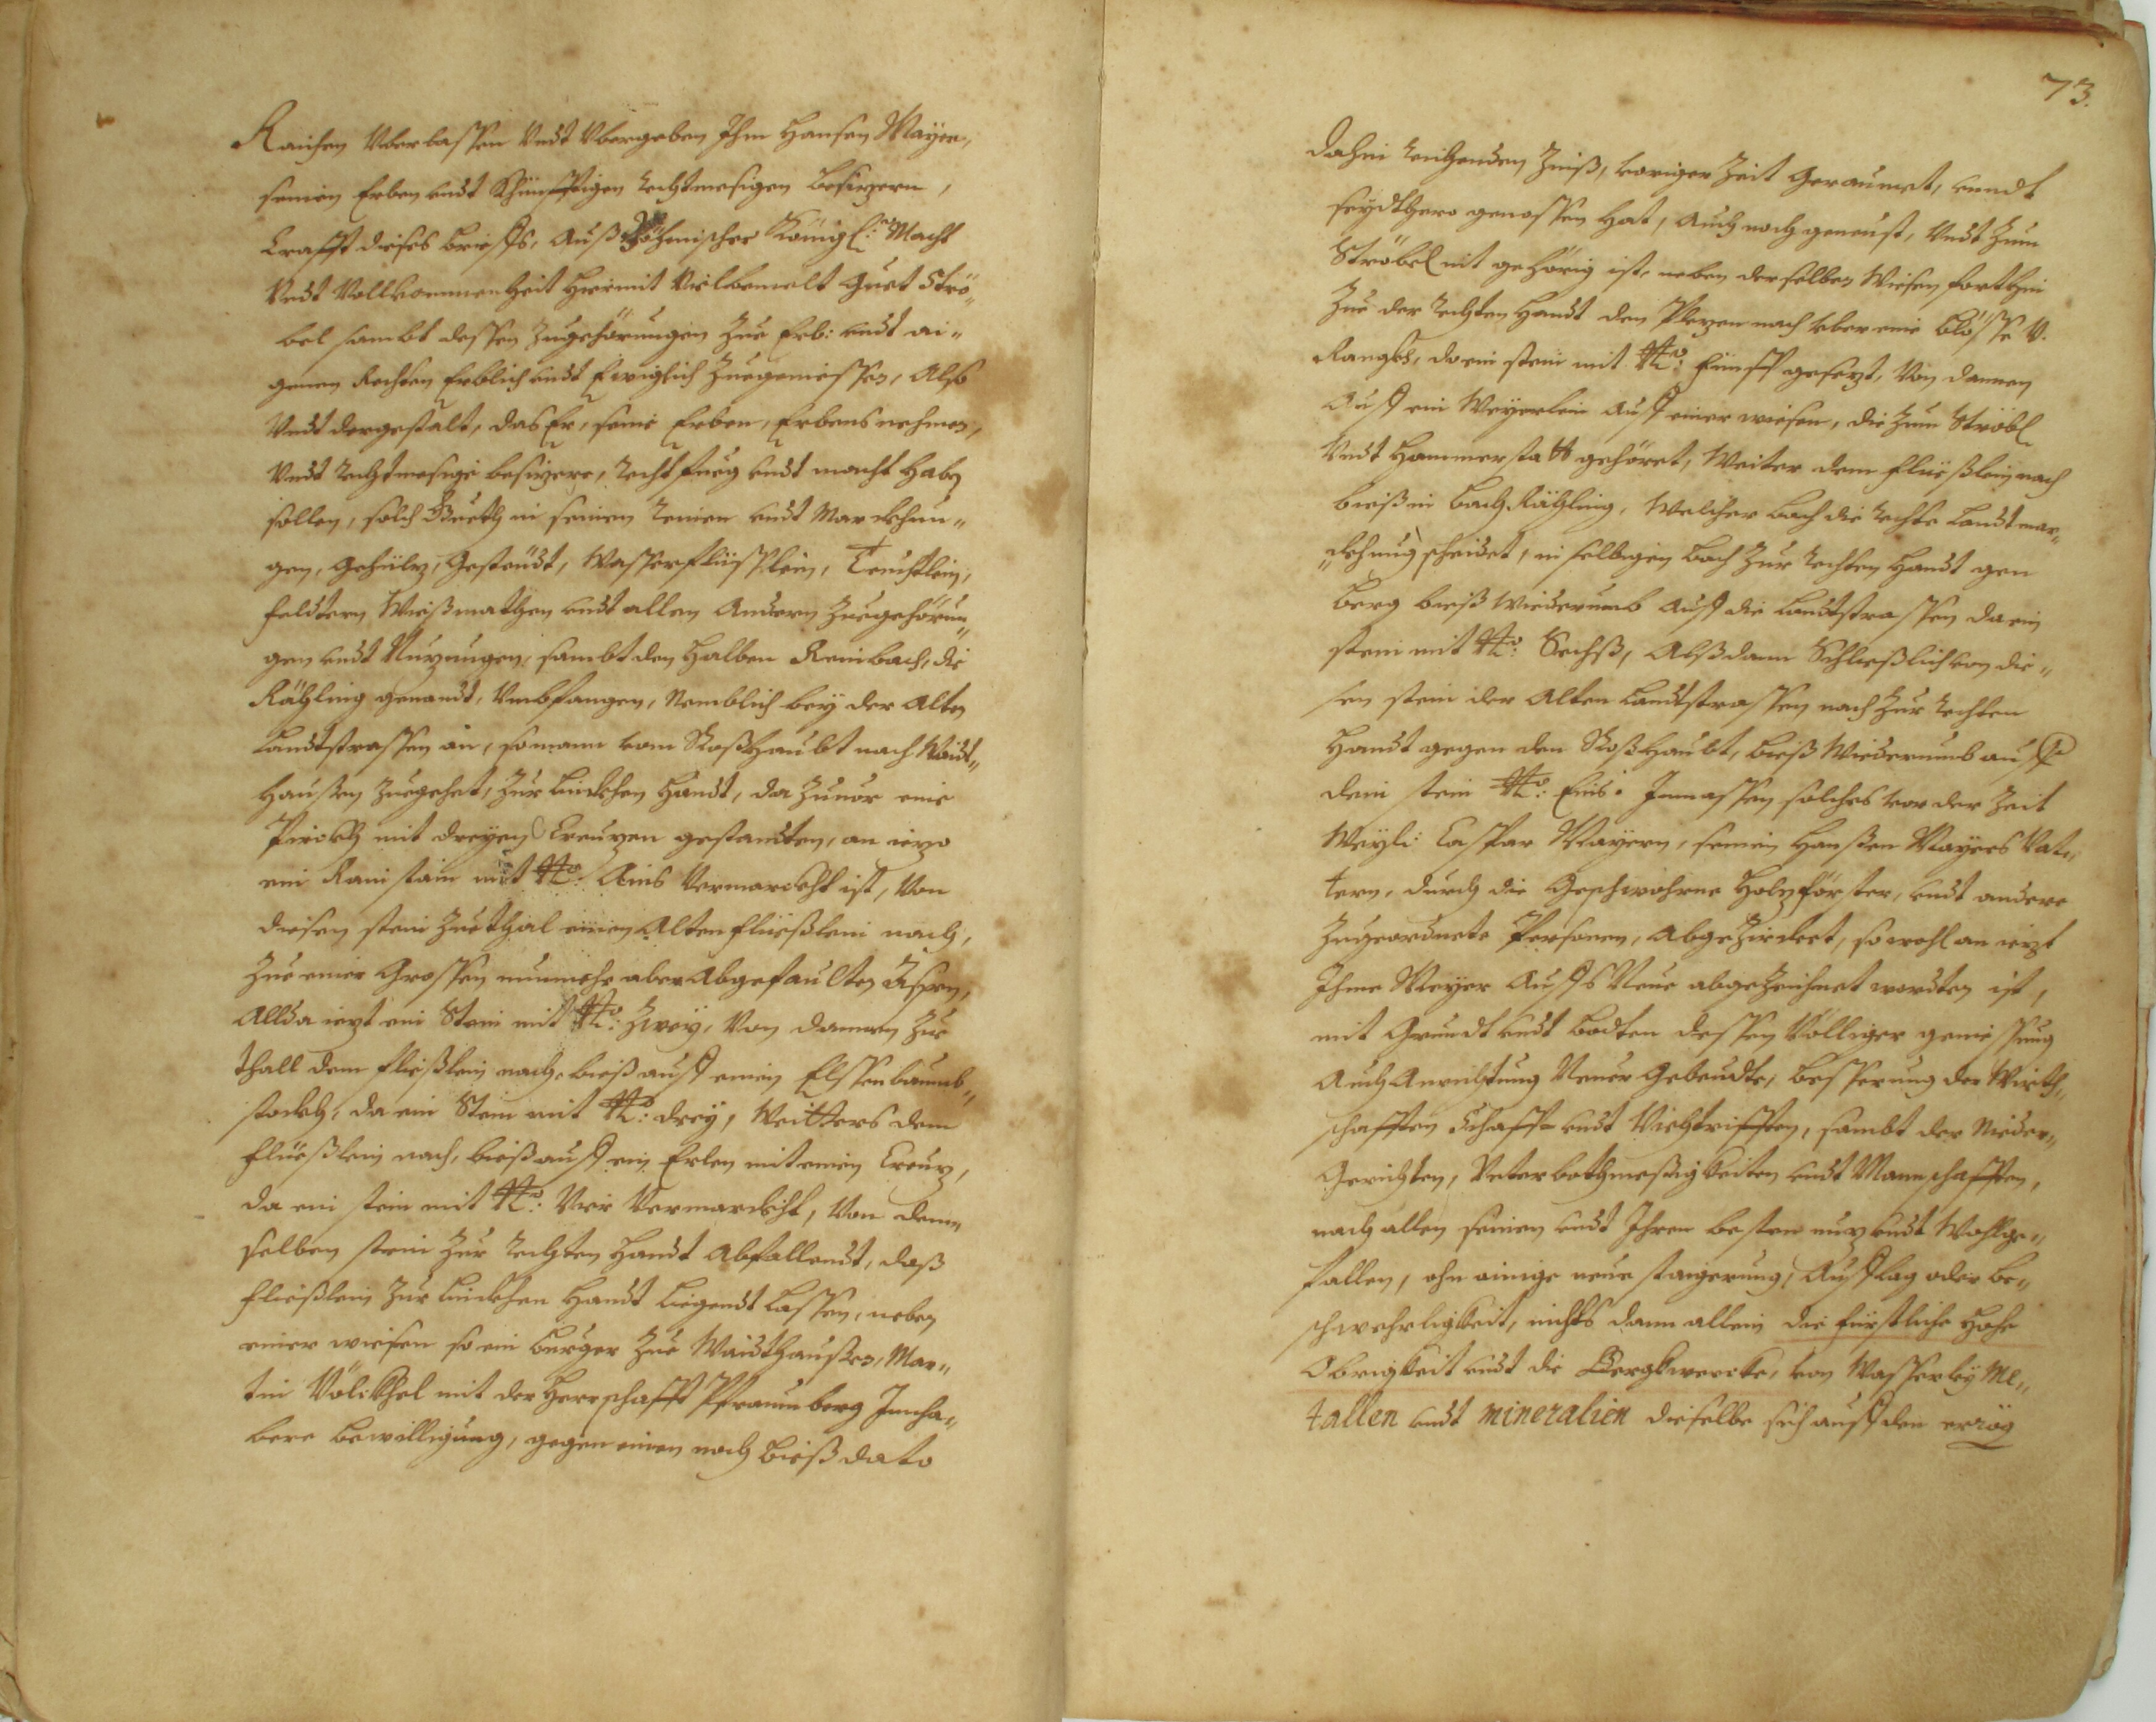 Raichen Vberlassen Vndt Vbergeben Ihm Hansen Mayer,
seinen Erben vndt Khünfftigen rechtmesigen besizern,
Crafft dieses brieffs, Auß Böhmischer Königl: Macht
Vndt Vollkommenheit hiermit Vielbemelt Guet Strö„
bel sambt dessen Zugehörungen Zue Erb: vndt ai„
genen Rechten Erblich vndt Ewiglich Zuegeniessen, Also
Vndt dergestalt, das Er, seine Erben, Erbensnehmer,
Vndt rechtmesige besizere, recht fueg vndt macht haben
sollen, solch Gueth in seinen reinen vndt Marckhun„
gen, Gehülz, Gesteudt, Wasserflüsslein, Teuchtlein,
feldtern Wießmathen vndt allen Andern Zuegehörun„
gen vndt Nuzungen, sambt den halben Reinbach, die
Rähling genandt, Vmbfangen, Nemblich bey der Alten
Landtstrassen an, so mann vom Roßhaubt nach Waidt„
haußen Zuegehet, Zur linckhen Handt, da Zuuor eine
mit dreyen Creuzen gestandten, an iezo
ein Rainstain mit No: Ains Vermarckht ist, Von
diesen stein Zuethal einen Alten flüeßlein nach,
Zue einer Grossen nunmehr aber Abgefaulten Aspen,
Allda iezt ein Stein mit No: Zwey, Von dannen Zue
thall dem fließlein nach, bieß auff einen Elssenbaumb„
stockh, da ein Stein mit No: drey, Weitters dem
flüeßlein nach, bieß auff ein Erlen mit einen Creuz,
da ein stein mit No: Vier Vermarckht, Von dem„
selben stein Zur rechten Handt Abfallendt, daß
fließlein Zur linckhen Handt liegendt lassen, neben
einer wiesen so ein burger Zue Waidthaußen, Mar„
tin Völckhel mit der Herrschafft Pfraumberg Innha„
bere bewilligung, gegen einen noch bieß dato
73.
dahin reichenden Zinß, voriger Zeit Geraumet, vndt
seydthero genossen hat, Auch noch geneust, Vndt Zum
Ströbel nit gehörig ist, neben derselben Wiesen forthin
Zue der rechten Handt den Plezen nach vber eine blösse V.
, da ein stein mit No: fünff gesezt, Von dannen
Auff ein Weyerlein auff einer wiesen, die Zum Ströbl
Vndt Hammerstatt gehöret, Weiter dem flüeßlein nach
bieß in bach Rähling, Welcher bach die rechte Landtmar„
„ckhung scheidet, in selbigen bach Zur rechten Handt gen
berg bieß Wiederumb auff die Landtstrassen da ein
stein mit No: Sechß, Alßdann Schließlich von die„
sen stein der Alten Landtstrassen nach Zur rechten
Handt gegen den Roßhaubt, bieß Wiederumb auff
dem stein No: Eins. Inmassen solches vor der Zeit
Weyl: Caspar Mayern, seinen Hanßen Mayers Vat„
tern, durch die Geschwohrne Holzförster, vndt andere
Zugeordnete Personen, Abgezircket, sowohl an iezt
Ihme Mayer Auffs Neue abgezeichnet wordten ist,
mit Grundt vndt bodten dessen Völliger geniessung
Auch Anrichtung Neuer Gebeudte, besserung der Wirth„
schafften Schaff- vndt Viehtrifften, sambt der Nieder„
Gerichten, Vnterbothmessigkeiten vndt Mannschafften,
nach allen seinen vndt Ihren besten nuz vndt Wohlge„
fallen, ohn einige neue staigerung, Aufflag oder be„
schwehrligkeit, nichts dann allein die fürstliche Hohe
Obrigkeit vndt die Bergkwercke, von Wasserley Me„
tallen vndt mineralien dieselbe sich auff den